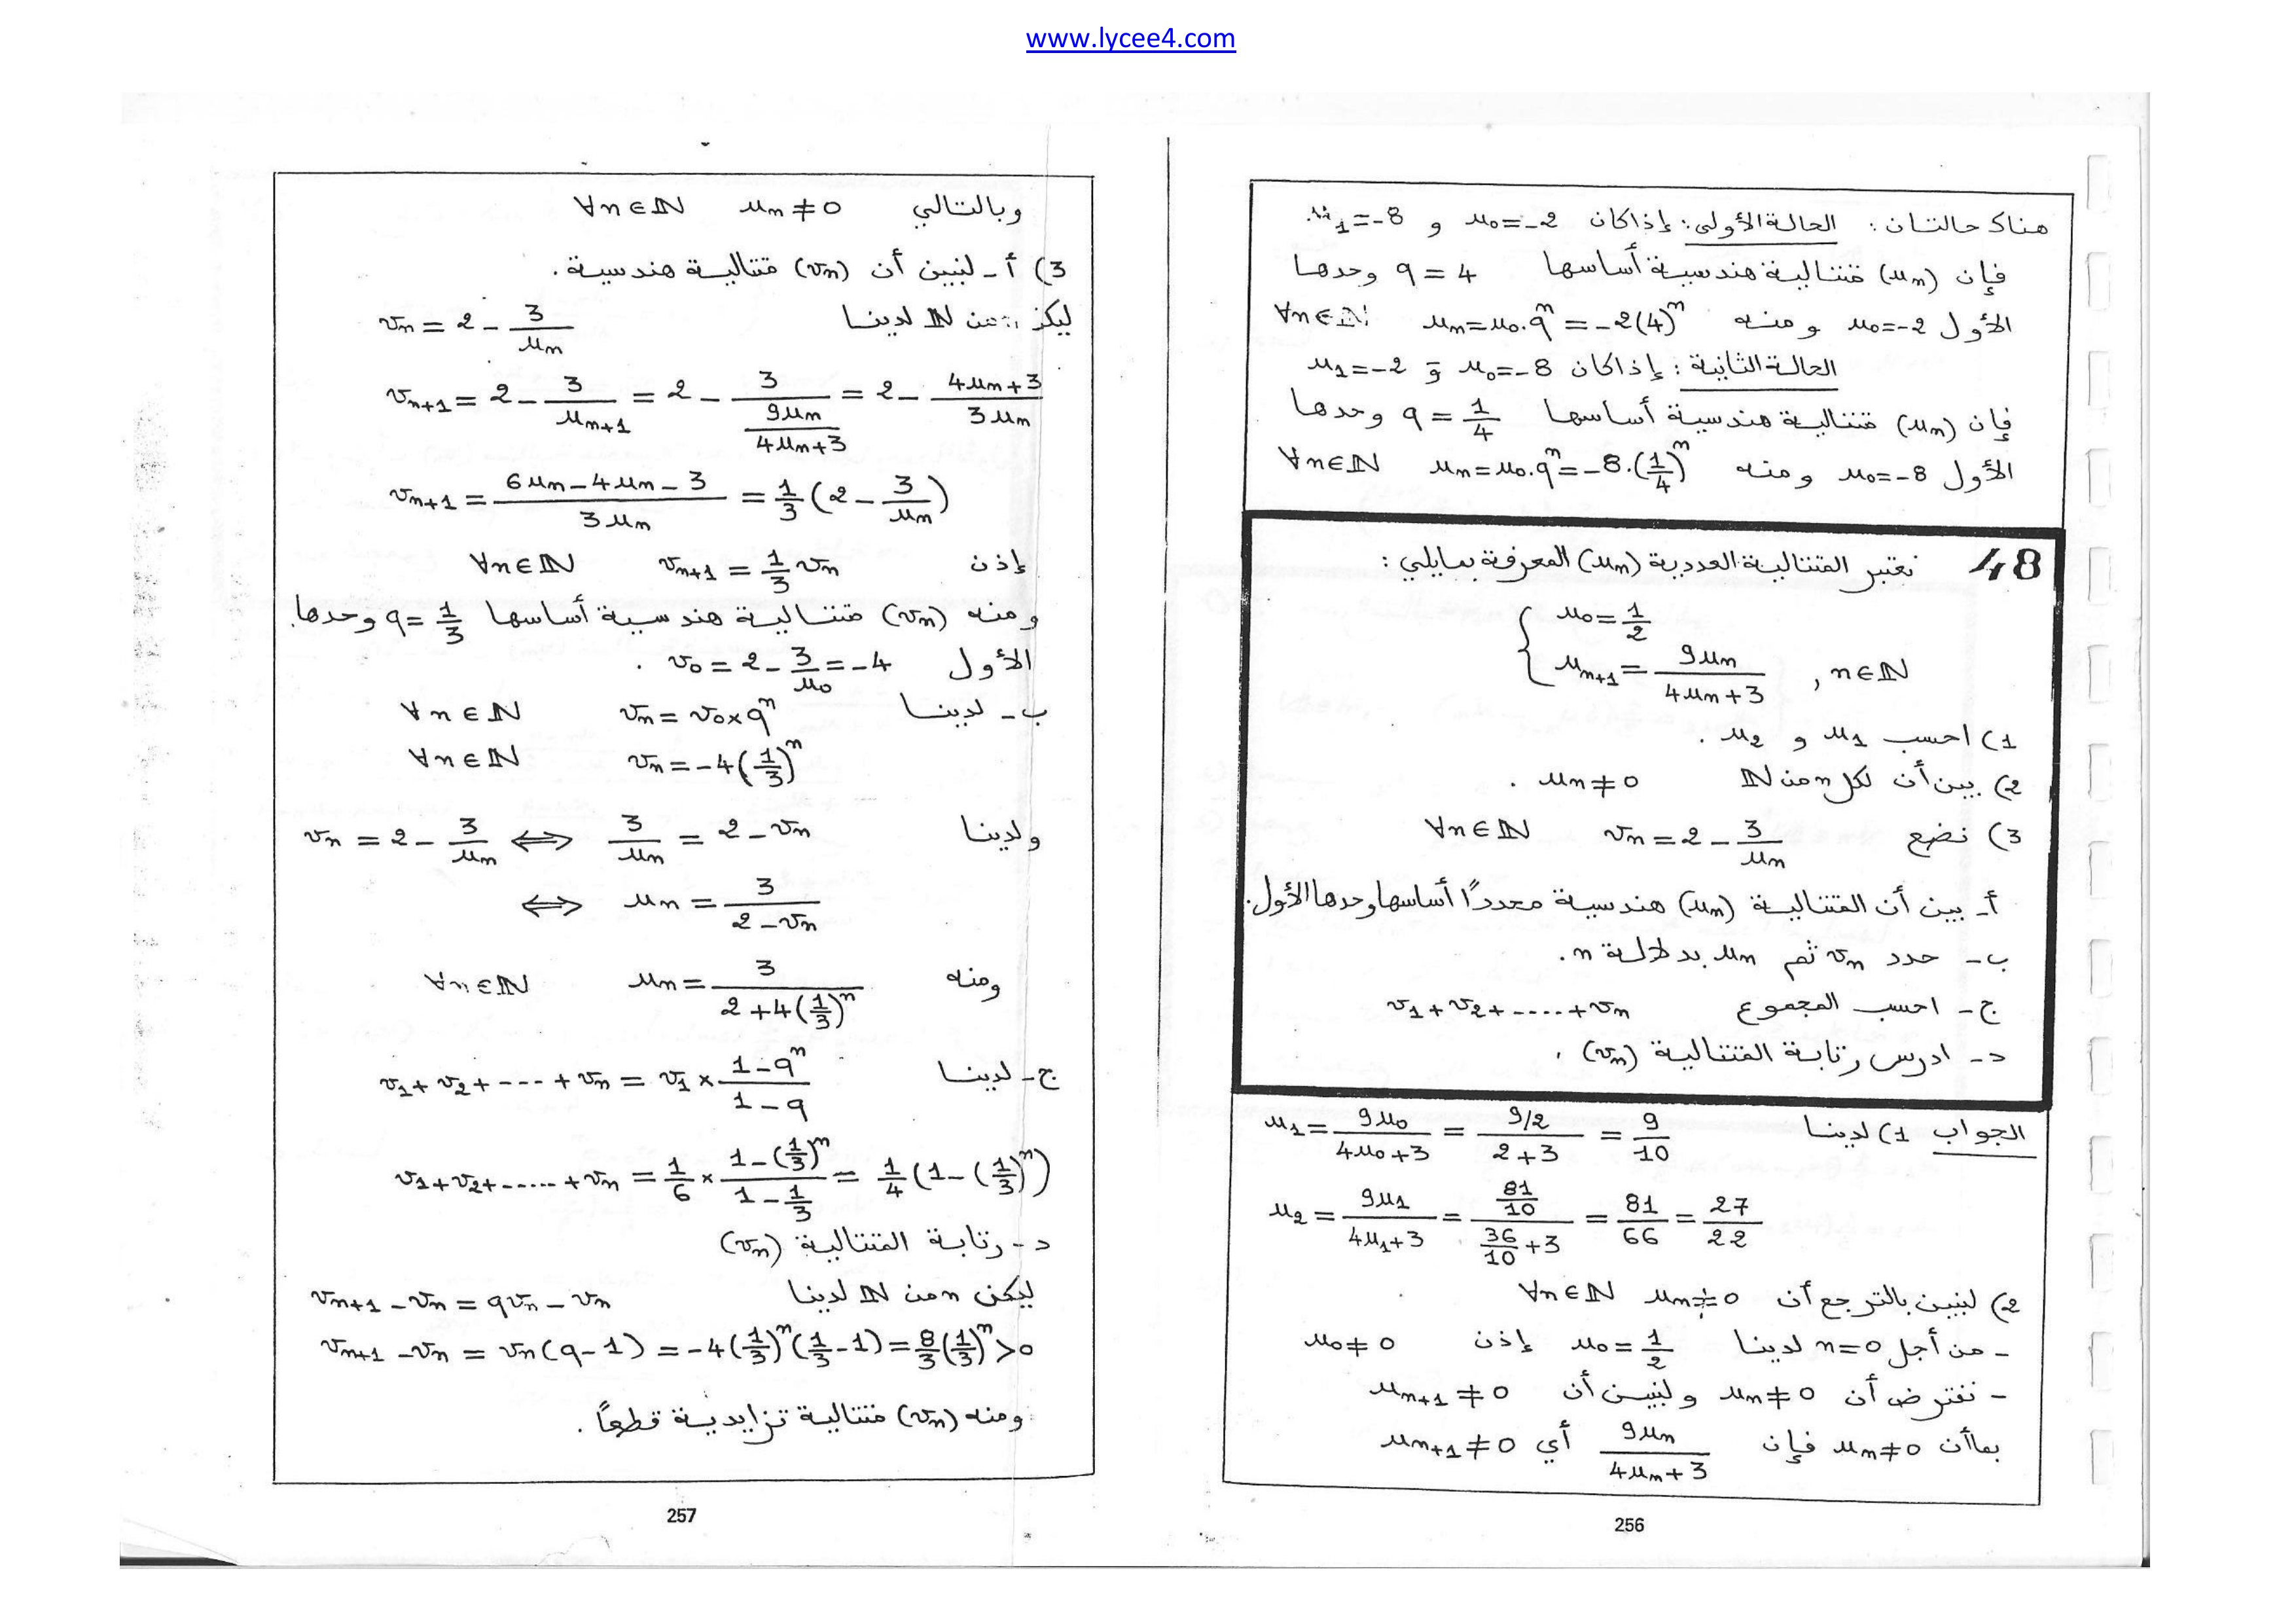 www.lycee4.com
هناك حالتان : الحالة الأولى : إذا كان u₀=-2 و u₁=-8
فإن (uₙ) متتالية هندسية أساسها q = 4 وحدها
الأول u₀=-2 ومنه uₙ=u₀.qⁿ = -2(4)ⁿ ∀n∈ℕ
الحالة الثانية : إذا كان u₀=-8 و u₁=-2
فإن (uₙ) متتالية هندسية أساسها q = 1/4 وحدها
الأول u₀=-8 ومنه uₙ=u₀.qⁿ=-8.(1/4)ⁿ ∀n∈ℕ
48 نعتبر المتتالية العددية (uₙ) المعرفة بمايلي :
{ u₀=1/2
uₙ₊₁ = 9uₙ/(4uₙ+3) , n∈ℕ
1) احسب u₁ و u₂ .
2) بين أن لكل n من ℕ uₙ≠0 .
3) نضع vₙ = 2 - 3/uₙ ∀n∈ℕ
أ- بين أن المتتالية (uₙ) هندسية محددًا أساسها وحدها الأول.
ب- حدد vₙ ثم uₙ بدلالة n.
ج- احسب المجموع v₁+v₂+....+vₙ
د- ادرس رتابة المتتالية (vₙ) .
الجواب 1) لدينا u₁ = 9u₀/(4u₀+3) = (9/2)/(2+3) = 9/10
u₂ = 9u₁/(4u₁+3) = (81/10)/(36/10+3) = 81/66 = 27/22
2) لنبين بالترجع أن uₙ≠0 ∀n∈ℕ
- من أجل n=0 لدينا u₀=1/2 إذن u₀≠0
- نفترض أن uₙ≠0 ولنبين أن uₙ₊₁≠0
بما أن uₙ≠0 فإن 9uₙ/(4uₙ+3) أي uₙ₊₁≠0
256
وبالتالي uₙ≠0 ∀n∈ℕ
3) أ- لنبين أن (vₙ) متتالية هندسية .
من ℕ لدينا vₙ = 2 - 3/uₙ
vₙ₊₁ = 2 - 3/uₙ₊₁ = 2 - 3/(9uₙ/(4uₙ+3)) = 2 - (4uₙ+3)/3uₙ
vₙ₊₁ = (6uₙ-4uₙ-3)/3uₙ = 1/3(2 - 3/uₙ)
إذن vₙ₊₁ = 1/3 vₙ ∀n∈ℕ
ومنه (vₙ) متتالية هندسية أساسها q=1/3 وحدها
الأول v₀ = 2 - 3/u₀ = -4 .
ب- لدينا vₙ = v₀×qⁿ ∀n∈ℕ
vₙ = -4(1/3)ⁿ ∀n∈ℕ
ولدينا vₙ = 2 - 3/uₙ ⟺ 3/uₙ = 2 - vₙ
⟺ uₙ = 3/(2-vₙ)
ومنه uₙ = 3/(2+4(1/3)ⁿ) ∀n∈ℕ
ج- لدينا v₁+v₂+----+vₙ = v₁ × (1-qⁿ)/(1-q)
v₁+v₂+.....+vₙ = 1/6 × (1-(1/3)ⁿ)/(1-1/3) = 1/4(1-(1/3)ⁿ)
د- رتابة المتتالية (vₙ)
ليكن n من ℕ لدينا vₙ₊₁ - vₙ = qvₙ - vₙ
vₙ₊₁ - vₙ = vₙ(q-1) = -4(1/3)ⁿ(1/3-1) = 8/3(1/3)ⁿ>0
ومنه (vₙ) متتالية تزايدية قطعاً .
257